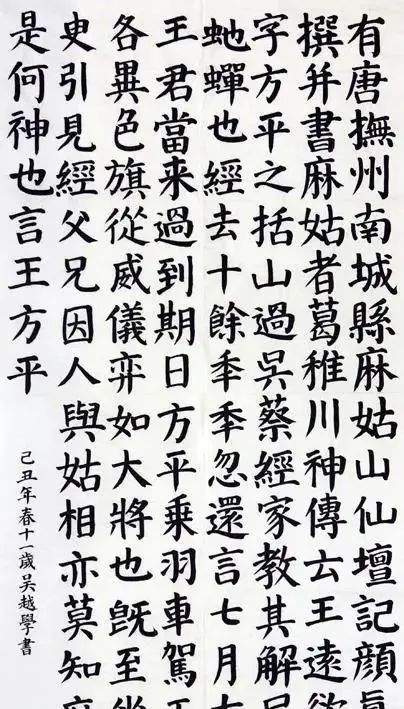 有唐撫州南城縣麻姑山仙壇記顔真
撰并書麻姑者葛稚川神傳云王遠欲
字方平之括山過吳蔡經家教其解
虵蟬也經去十餘秊秊忽還言七月
王君當来過到期日方平乗羽車駕
各異色旗從威儀弈如大將也既至坐
史引見經父兄因人與姑相亦莫知
是何神也言王方平
己丑年春十一歲吴越學書